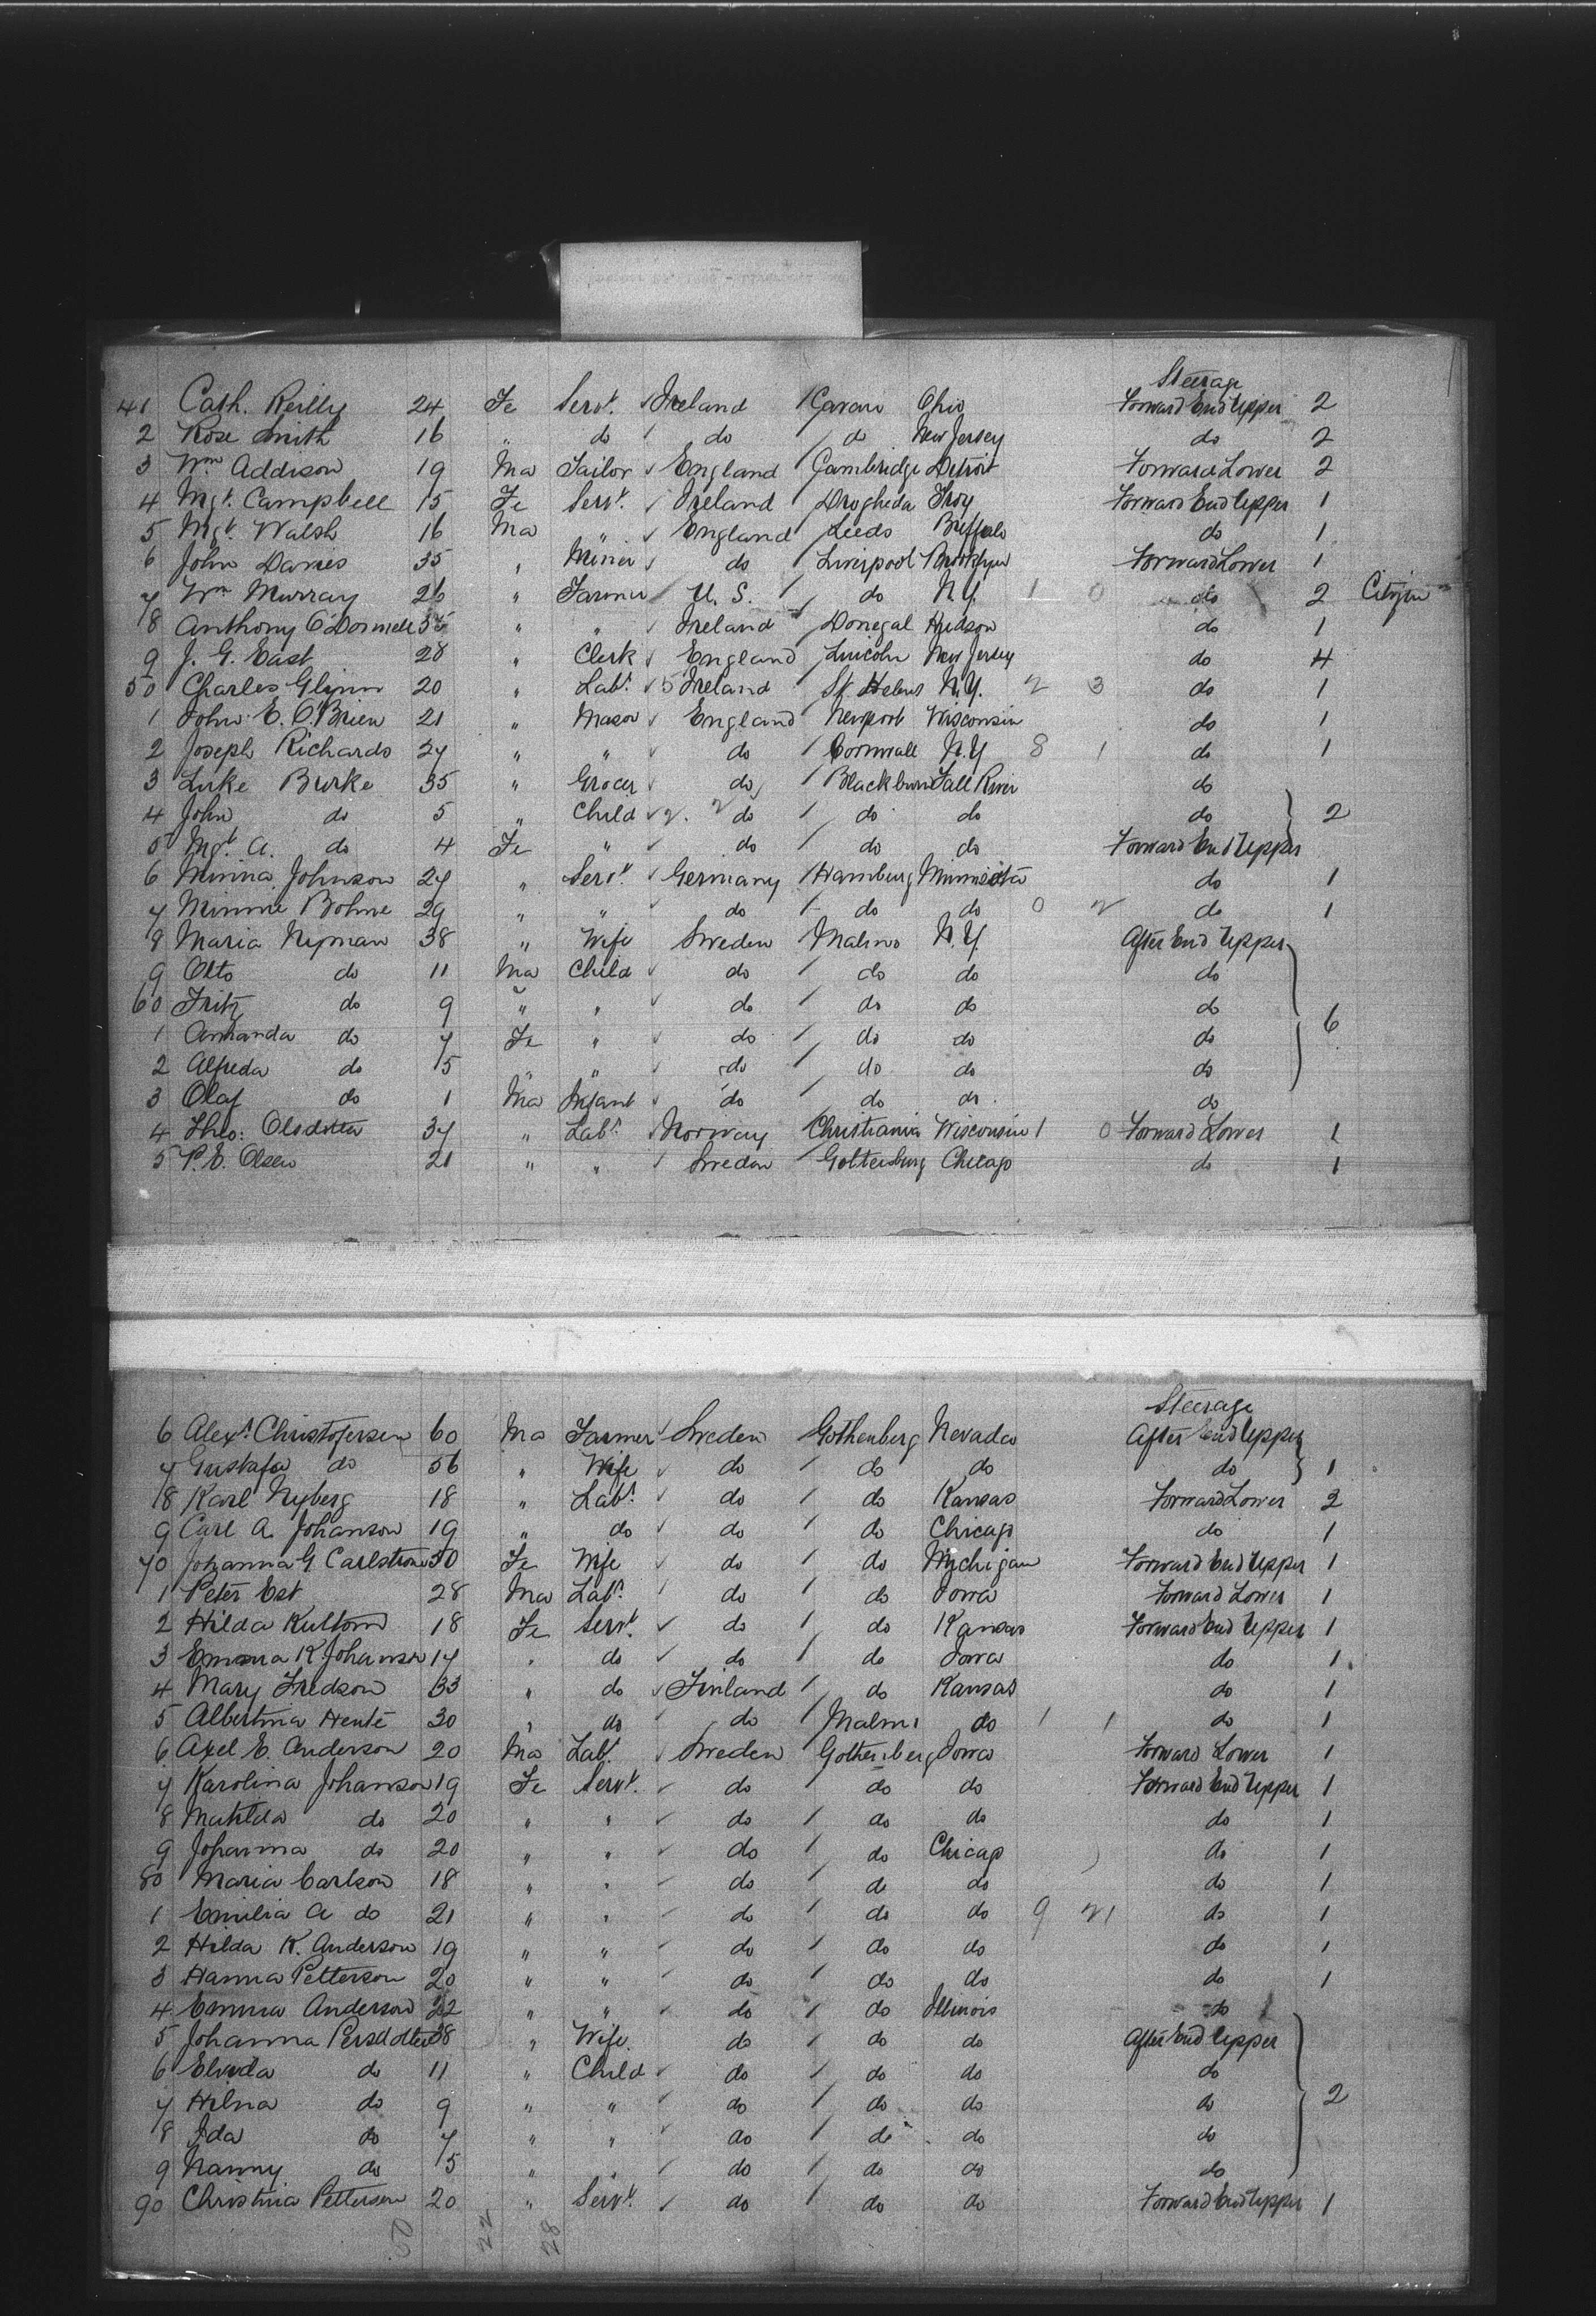 Steerage
41 Cath. Reilly 24 Fe Servt. Ireland Cavan Ohio Forward End Upper 2
2 Rose Smith 16 " do do do New Jersey do 2
3 Wm Addison 19 Ma Tailor England Cambridge Detroit Forward Lower 2
4 Mgt. Campbell 15 Fe Servt. Ireland Drogheda Troy Forward End Upper 1
5 Mgt. Walsh 16 Ma " England Leeds Buffalo do 1
6 John Davies 35 " Miner do Liverpool Brooklyn Forward Lower 1
7 Wm Murray 26 " Farmer U. S. do N.Y. 1 0 do 2 Citizen
8 Anthony O'Donnell 35 " " Ireland Donegal Hudson do 1
9 J. G. East 28 " Clerk England Lincoln New Jersey do 4
50 Charles Glynn 20 " Labr. 5 Ireland St. Helens N.Y. 2 3 do 1
1 John E. O'Brien 21 " Mason England Newport Wisconsin do 1
2 Joseph Richards 27 " " do Cornwall N.Y 8 1 do 1
3 Luke Burke 35 " Grocer do Blackburn Fall River do
4 John do 5 " Child 2. 2 do do do do 2
5 Mgt. A. do 4 Fe " do do do Forward End Upper
6 Minna Johnson 27 " Servt. Germany Hamburg Minnesota do 1
7 Minnie Bohne 29 " " do do do 0 2 do 1
8 Maria Nyman 38 " Wife Sweden Malmo N.Y. After End Upper
9 Otto do 11 Ma Child do do do do
60 Fritz do 9 " " do do do do 6
1 Amanda do 7 Fe " do do do do
2 Alfreda do 5 " " do do do do
3 Olaf do 1 Ma Infant do do do do
4 Theo: 37 " Labr. Norway Christiania Wisconsin 1 0 Forward Lower 1
5 P. E. Olsen 21 " " Sweden Gottenburg Chicago do 1
Steerage
6 Alexr. Christofersen 60 Ma Farmer Sweden Gothenberg Nevada After End Upper
7 Gustafa do 56 " Wife do do do do 1
8 Karl Nyberg 18 " Labr. do do Kansas Forward Lower 2
9 Carl A. Johanson 19 " do do do Chicago do 1
70 Johanna G Carlstrom 50 Fe Wife do do Michigan Forward End Upper 1
1 Peter Est 28 Ma Labr. do do Iowa Forward Lower 1
2 Hilda 18 Fe Servt. do do Kansas Forward End Upper 1
3 Emma K. Johanson 17 " do do do Iowa do 1
4 Mary Fredson 33 " do Finland do Kansas do 1
5 Albertina 30 " do do Malmo do 1 1 do 1
6 Axel E. Anderson 20 Ma Labr. Sweden Gothenberg Iowa Forward Lower 1
7 Karolina Johanson 19 Fe Servt. do do do Forward End Upper 1
8 Matilda do 20 " " do do do do 1
9 Johanna do 20 " " do do Chicago do 1
80 Maria Carlson 18 " " do do do do 1
1 Emilia A do 21 " " do do do 9 21 do 1
2 Hilda K. Anderson 19 " " do do do do 1
3 Hanna Petterson 20 " " do do do do 1
4 Emma Anderson 22 " " do do Illinois do 1
5 Johanna Persdotter 38 " Wife do do do After End Upper
6 Elvida do 11 " Child do do do do
7 Hilna do 9 " " do do do do 2
8 Ida do 7 " " do do do do
9 Nanny do 5 " " do do do do
90 Christina Petterson 20 " Servt. do do do Forward End Upper 1
22 28